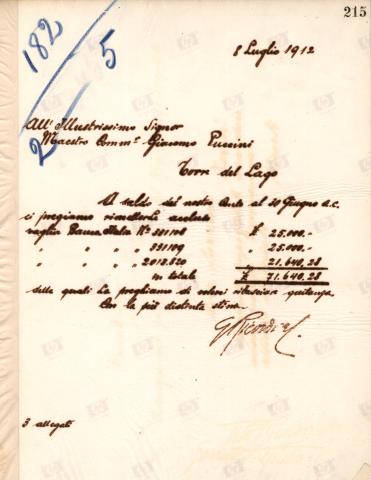 215
182
2/5
8 Luglio 1912
All' Illustrissimo Signor
Maestro Commre. Giacomo Puccini
Torre del Lago
A saldo del nostro Conto al 30 Giugno a.c.
ci pregiamo rimetterLe acclusi
vaglia Banca Italia No 331108 £ 25.000.-
" " " " 331109 " 25.000.-
" " " " 2018.820 " 21.640,28
in totale £ 71.640,28
delle quali La preghiamo di volerci rilasciare quitanza.
Con la più distinta stima.
G Ricordi e C.
3 allegati